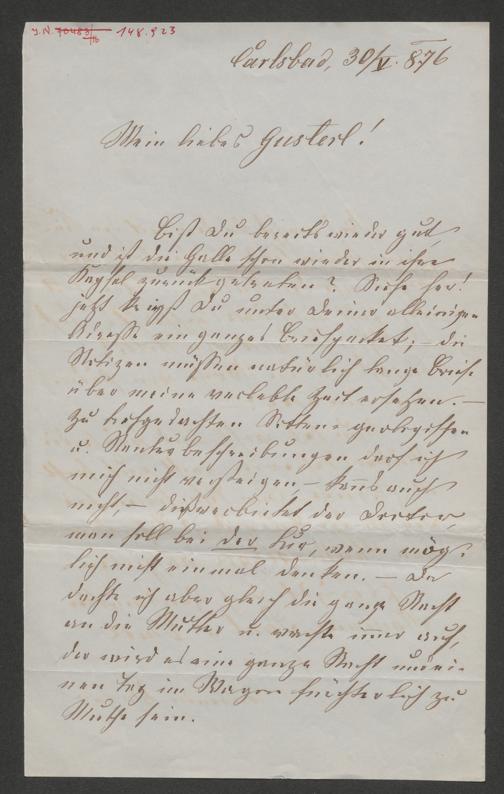 J.N. 70483/116 148.923
Carlsbad, 30/V. 876
Mein liebes Gusterl!
Bist Du bereits wieder gut,
und ist die Galle schon wieder in ihre
Kapsel zurückgetreten? Siehe her!
jetzt kriegst Du unter Deiner alleinigen
Adresse ein ganzes Briefpacket; – die
Notizen müssen natürlich lange Briefe
über meine verlebte Zeit ersetzen. –
Zu tiefgedachten Sitten- geologischen
u. Menschenbeschreibungen darf ich
mich nicht versteigen – kanns auch
nicht, – dieß verbietet der Doctor,
man soll bei der Kur, wenn mög-
lich nicht einmal denken. – Da
dachte ich aber gleich die ganze Nacht
an die Mutter u. wachte immer auf,
der wird es eine ganze Nacht und ei-
nen Tag im Wagen fürchterlich zu
Muthe sein.